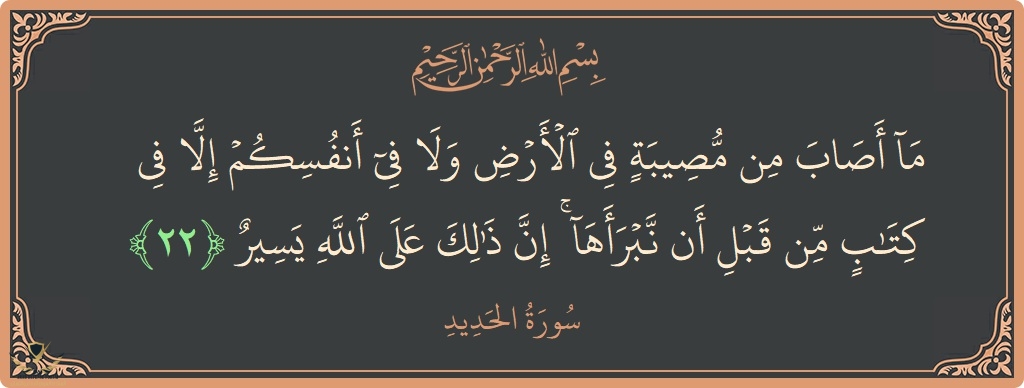 بِسْمِ اللهِ الرَّحْمٰنِ الرَّحِيْمِ
مَآ أَصَابَ مِن مُّصِيبَةٍ فِي ٱلْأَرْضِ وَلَا فِىٓ أَنفُسِكُمْ إِلَّا فِى
كِتَٰبٍ مِّن قَبْلِ أَن نَّبْرَأَهَآ ۚ إِنَّ ذَٰلِكَ عَلَى ٱللَّهِ يَسِيرٌ ﴿٢٢﴾
سُورَةُ الحَدِيدِ